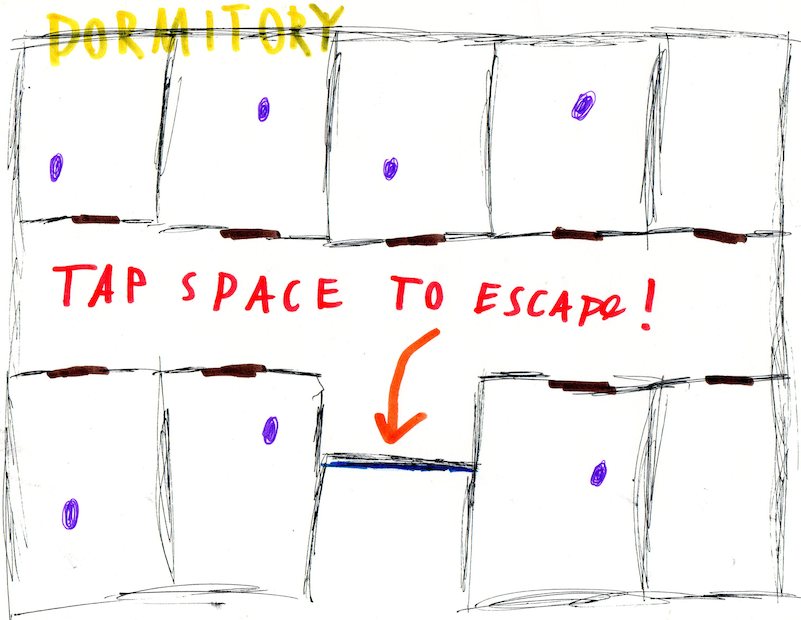 DORMITORY
TAP SPACE TO ESCAPe!